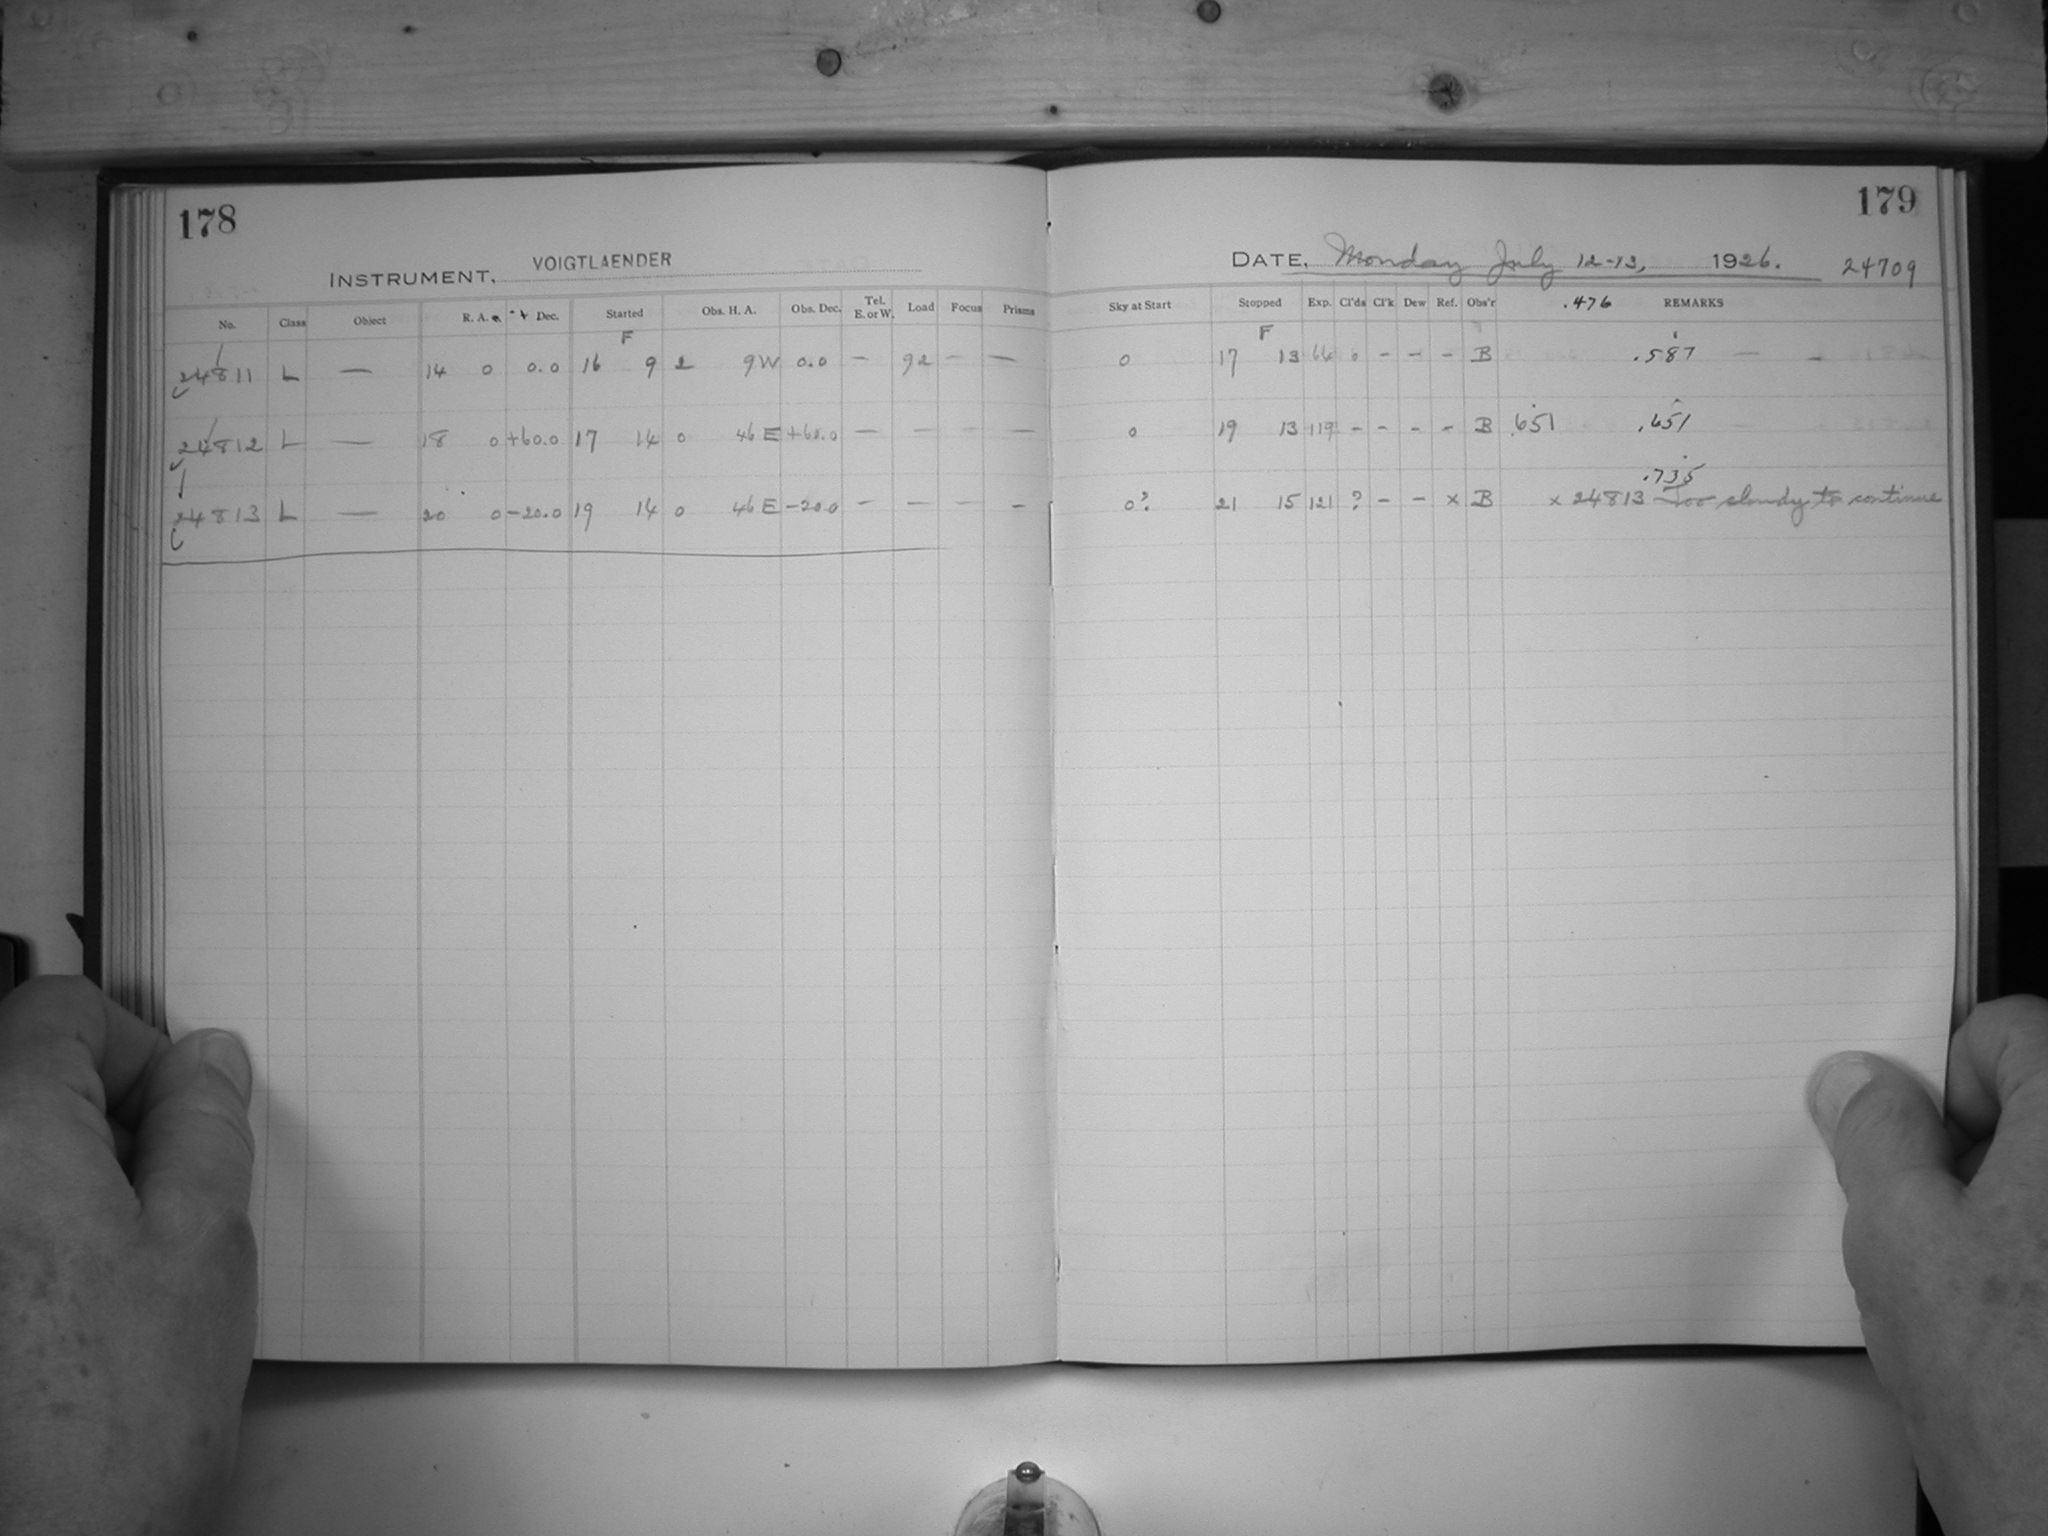 178
INSTRUMENT, VOIGTLAENDER
No. Class Object R. A. Dec. Started Obs. H. A. Obs. Dec. Tel. E. or W. Load Focus Prisms
F
24811 L — 14 0 0.0 16 9 2 9 W 0.0 — 92 — —
24812 L — 18 0 +60.0 17 14 0 46 E +60.0 — — — —
24813 L — 20 0 -20.0 19 14 0 46 E -20.0 — — — —
179
DATE, Monday July 12-13, 1926. 24709
Sky at Start Stopped Exp. Cl'ds Cl'k Dew Ref. Obs'r .476 REMARKS
F
0 17 13 64 0 - - - B .587 — -
0 19 13 119 - - - - B .651 .651
.735
0? 21 15 121 ? - - x B x 24813 Too cloudy to continue